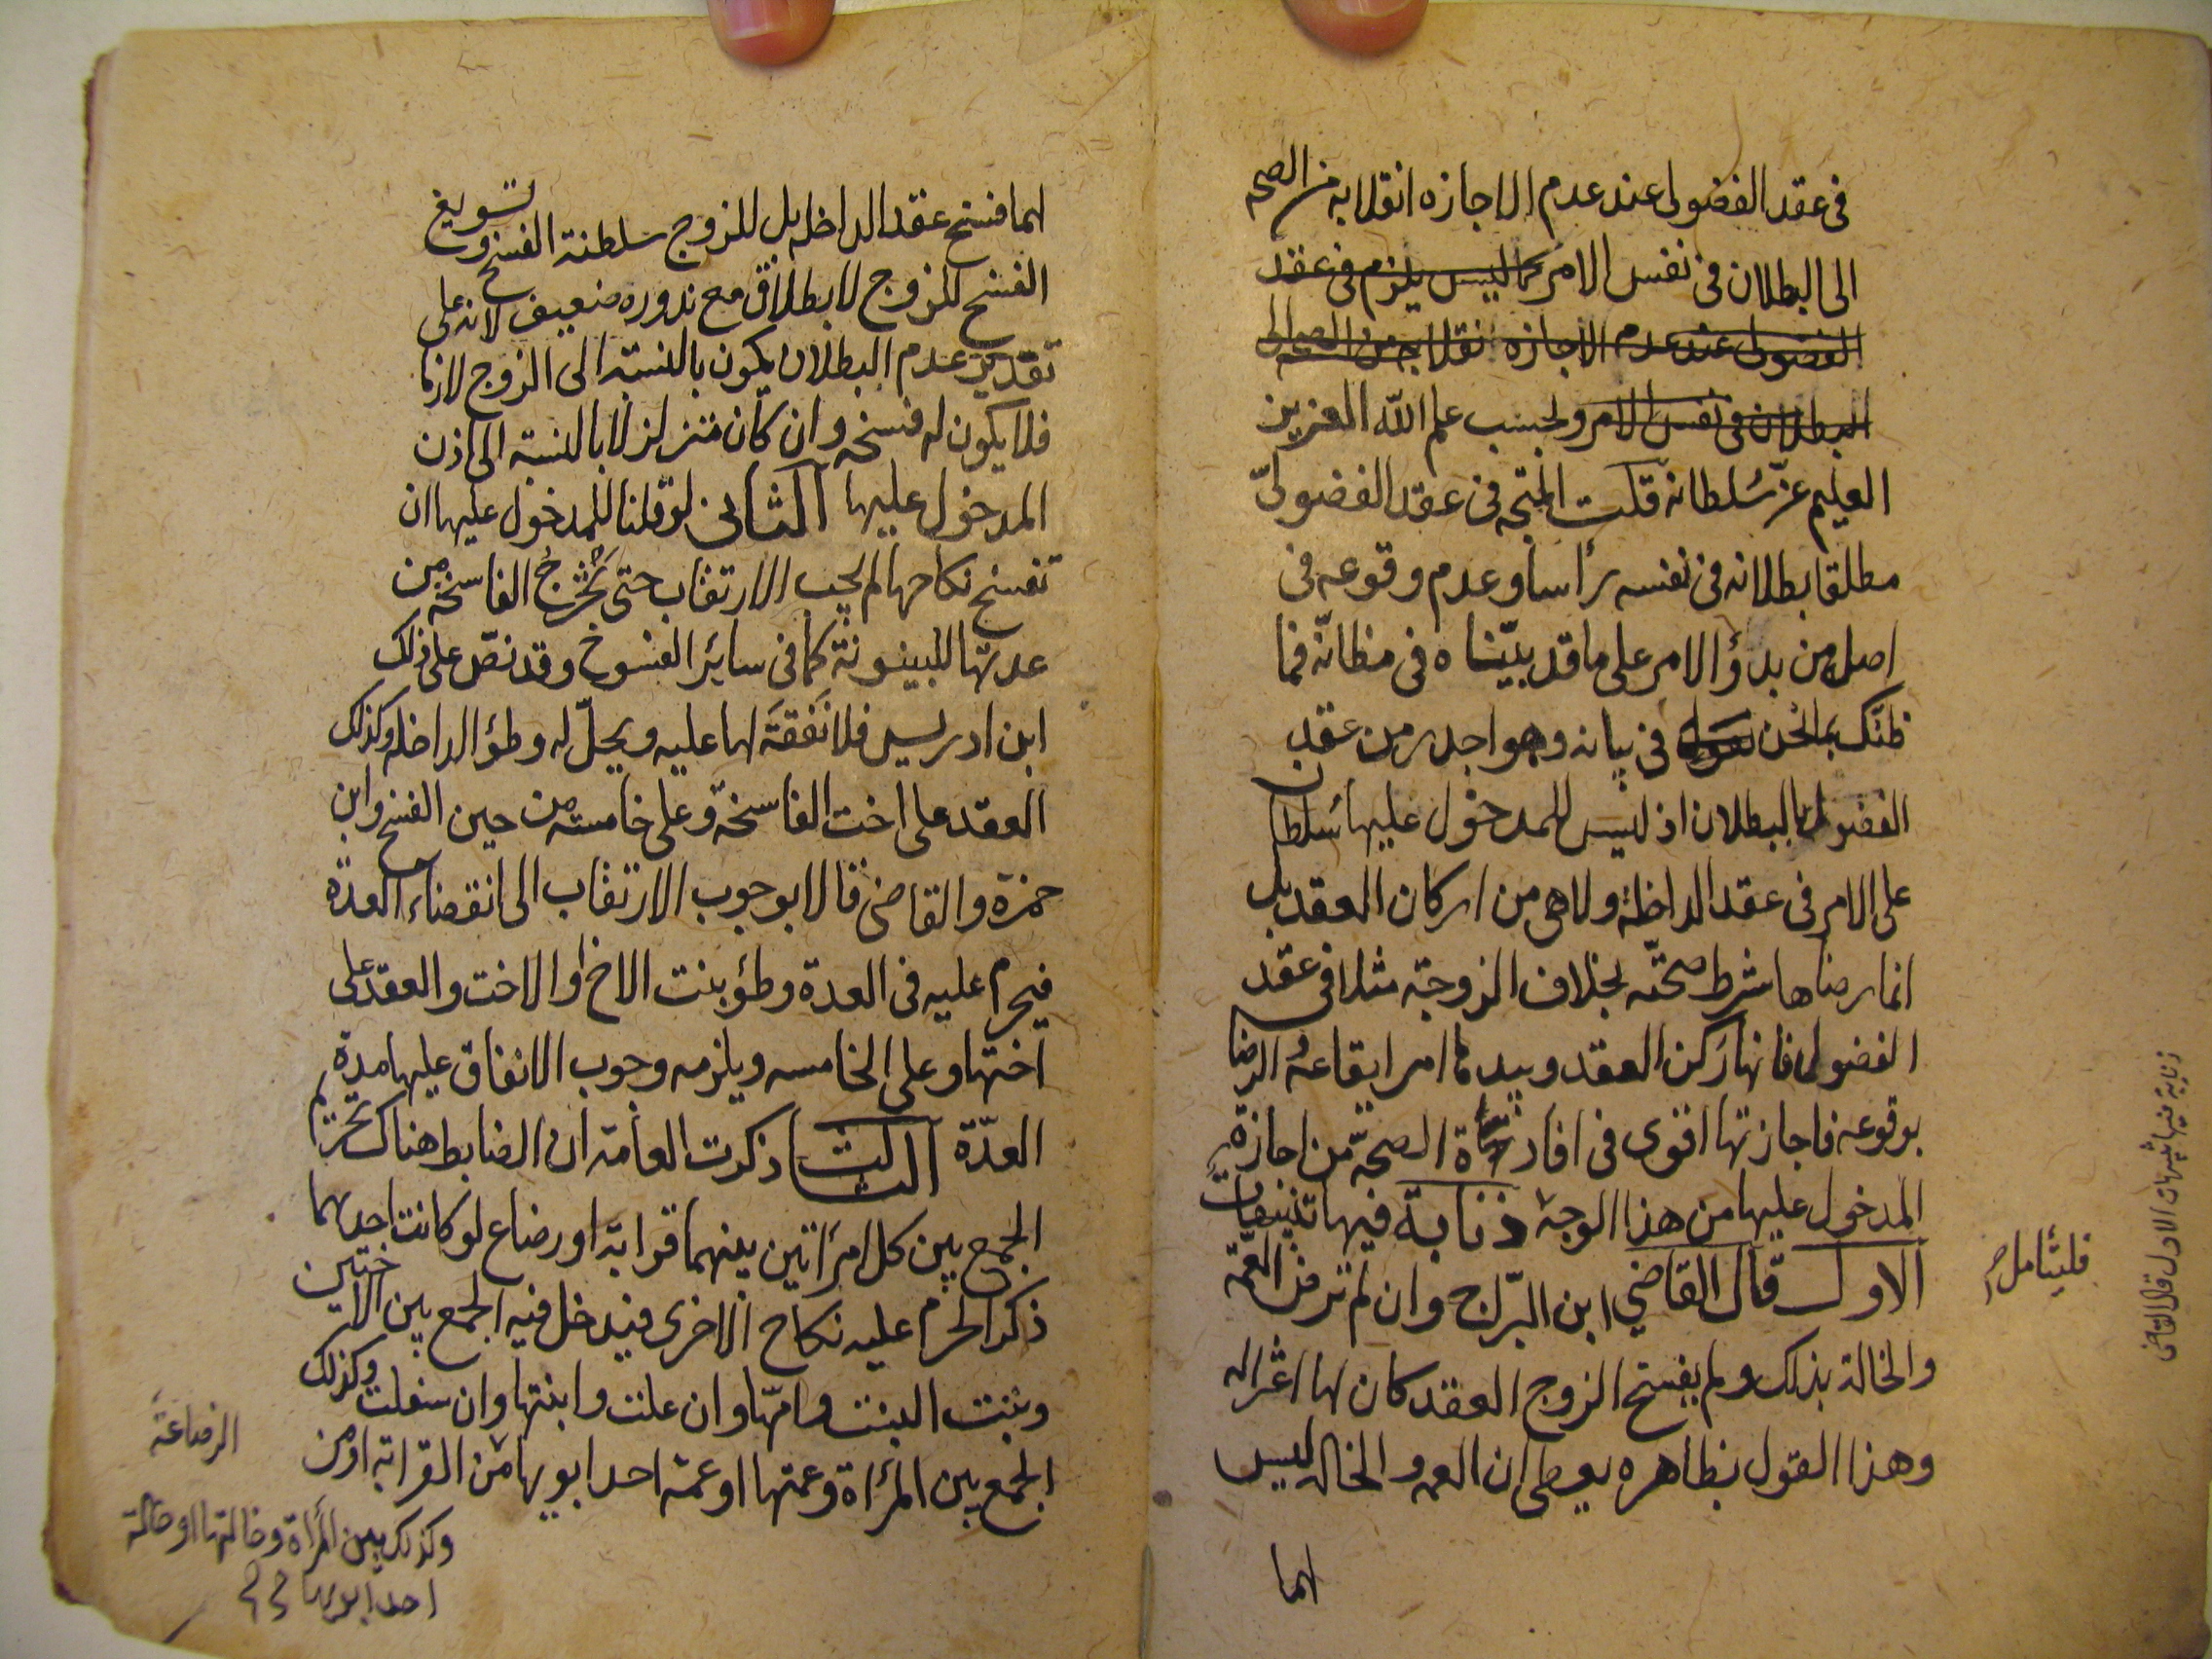 فى عقد الفضولى عند عدم الاجازه انقلابه من الصحه
الى البطلان فى نفس الامر كما ليس يلزم فى عقد
الفضولى عند عدم الاجازه انقلابه من الصحه الى
البطلان فى نفس الامر ولجسب علم الله العزيز
العليم عزّ سُلطانه قلت المتجه فى عقد الفضولىّ
مطلقا بطلانه فى نفسه رأسا وعدم وقوعه فى
اصله من بدؤ الامر على ما قد بيّنّاه فى مظانّه فما
ظنّك بمالخن فى بيانه وهو اجدر من عقد
الفضولى بالبطلان اذ ليس للمدخول عليها سُلطان
على الامر فى عقد الداخلة ولا هى من اركان العقد بل
انما رضاها شرط صحّته بخلاف الزوجة مثلا فى عقد
الفضولى فانها رُكن العقد وبيدها امر ايقاعه والرضا
بوقوعه فاجازتها اقوى فى افادة الصحّة من اجازة
المدخول عليها من هذا الوجه ذنابة فيها تنبيهات
الاول قال القاضي ابن البرّاج وان لم ترض العمّة
والخالة بذلك ولم يفسخ الزوج العقد كان لها اعتزاله
وهذا القول بظاهره يعطى ان العمه والخاله ليس
لهما
فليتأمل
ذنابة فيها تنبيهات الاول قال القاضى
لهما فسخ عقد الداخله بل للزوج سلطنة الفسخ وتسويغ
الفسخ للزوج لا بطلاق مع ندوره ضعيف لانه على
تقدير عدم البطلان يكون بالنسبة الى الزوج لازما
فلا يكون له فسخه وان كان متزلزلا بالنسبة الى اذن
المدخول عليها الثانى لو قلنا للمدخول عليها ان
تفسخ نكاحها لم يجب الارتقاب حتى تخرج الفاسخة من
عدتها للبينونة كما فى سائر الفسوخ وقد نصّ على ذلك
ابن ادريس فلا نَفَقَةَ لها عليه ويحلّ له وطؤ الداخله وكذلك
العقد على اخت الفاسخة وعلى خامسة من حين الفسخ وابن
حمزة والقاضى قالا بوجوب الارتقاب الى انقضاء العدّة
فيحرم عليه فى العدة وطؤ بنت الاخ او الاخت والعقد على
اختها وعلى الخامسه ويلزمه وجوب الانفاق عليها مدة
العدّة الثالث ذكرت العامة ان الضابط هناك تحريم
الجمع بين كل امرأتين بينهما قرابة او رضاع لو كانت احديهما
ذكرا لحرم عليه نكاح الاخرى فيدخل فيه الجمع بين الاختين
وبنت البنت وامّها وان علت وابنتها وان سفلت وكذلك
الجمع بين المرأة وعمتها او عمة احد ابويها من القرابة او من
الرضاعة
وكذلك بين المرأة وخالتها او خالة
احد ابويها